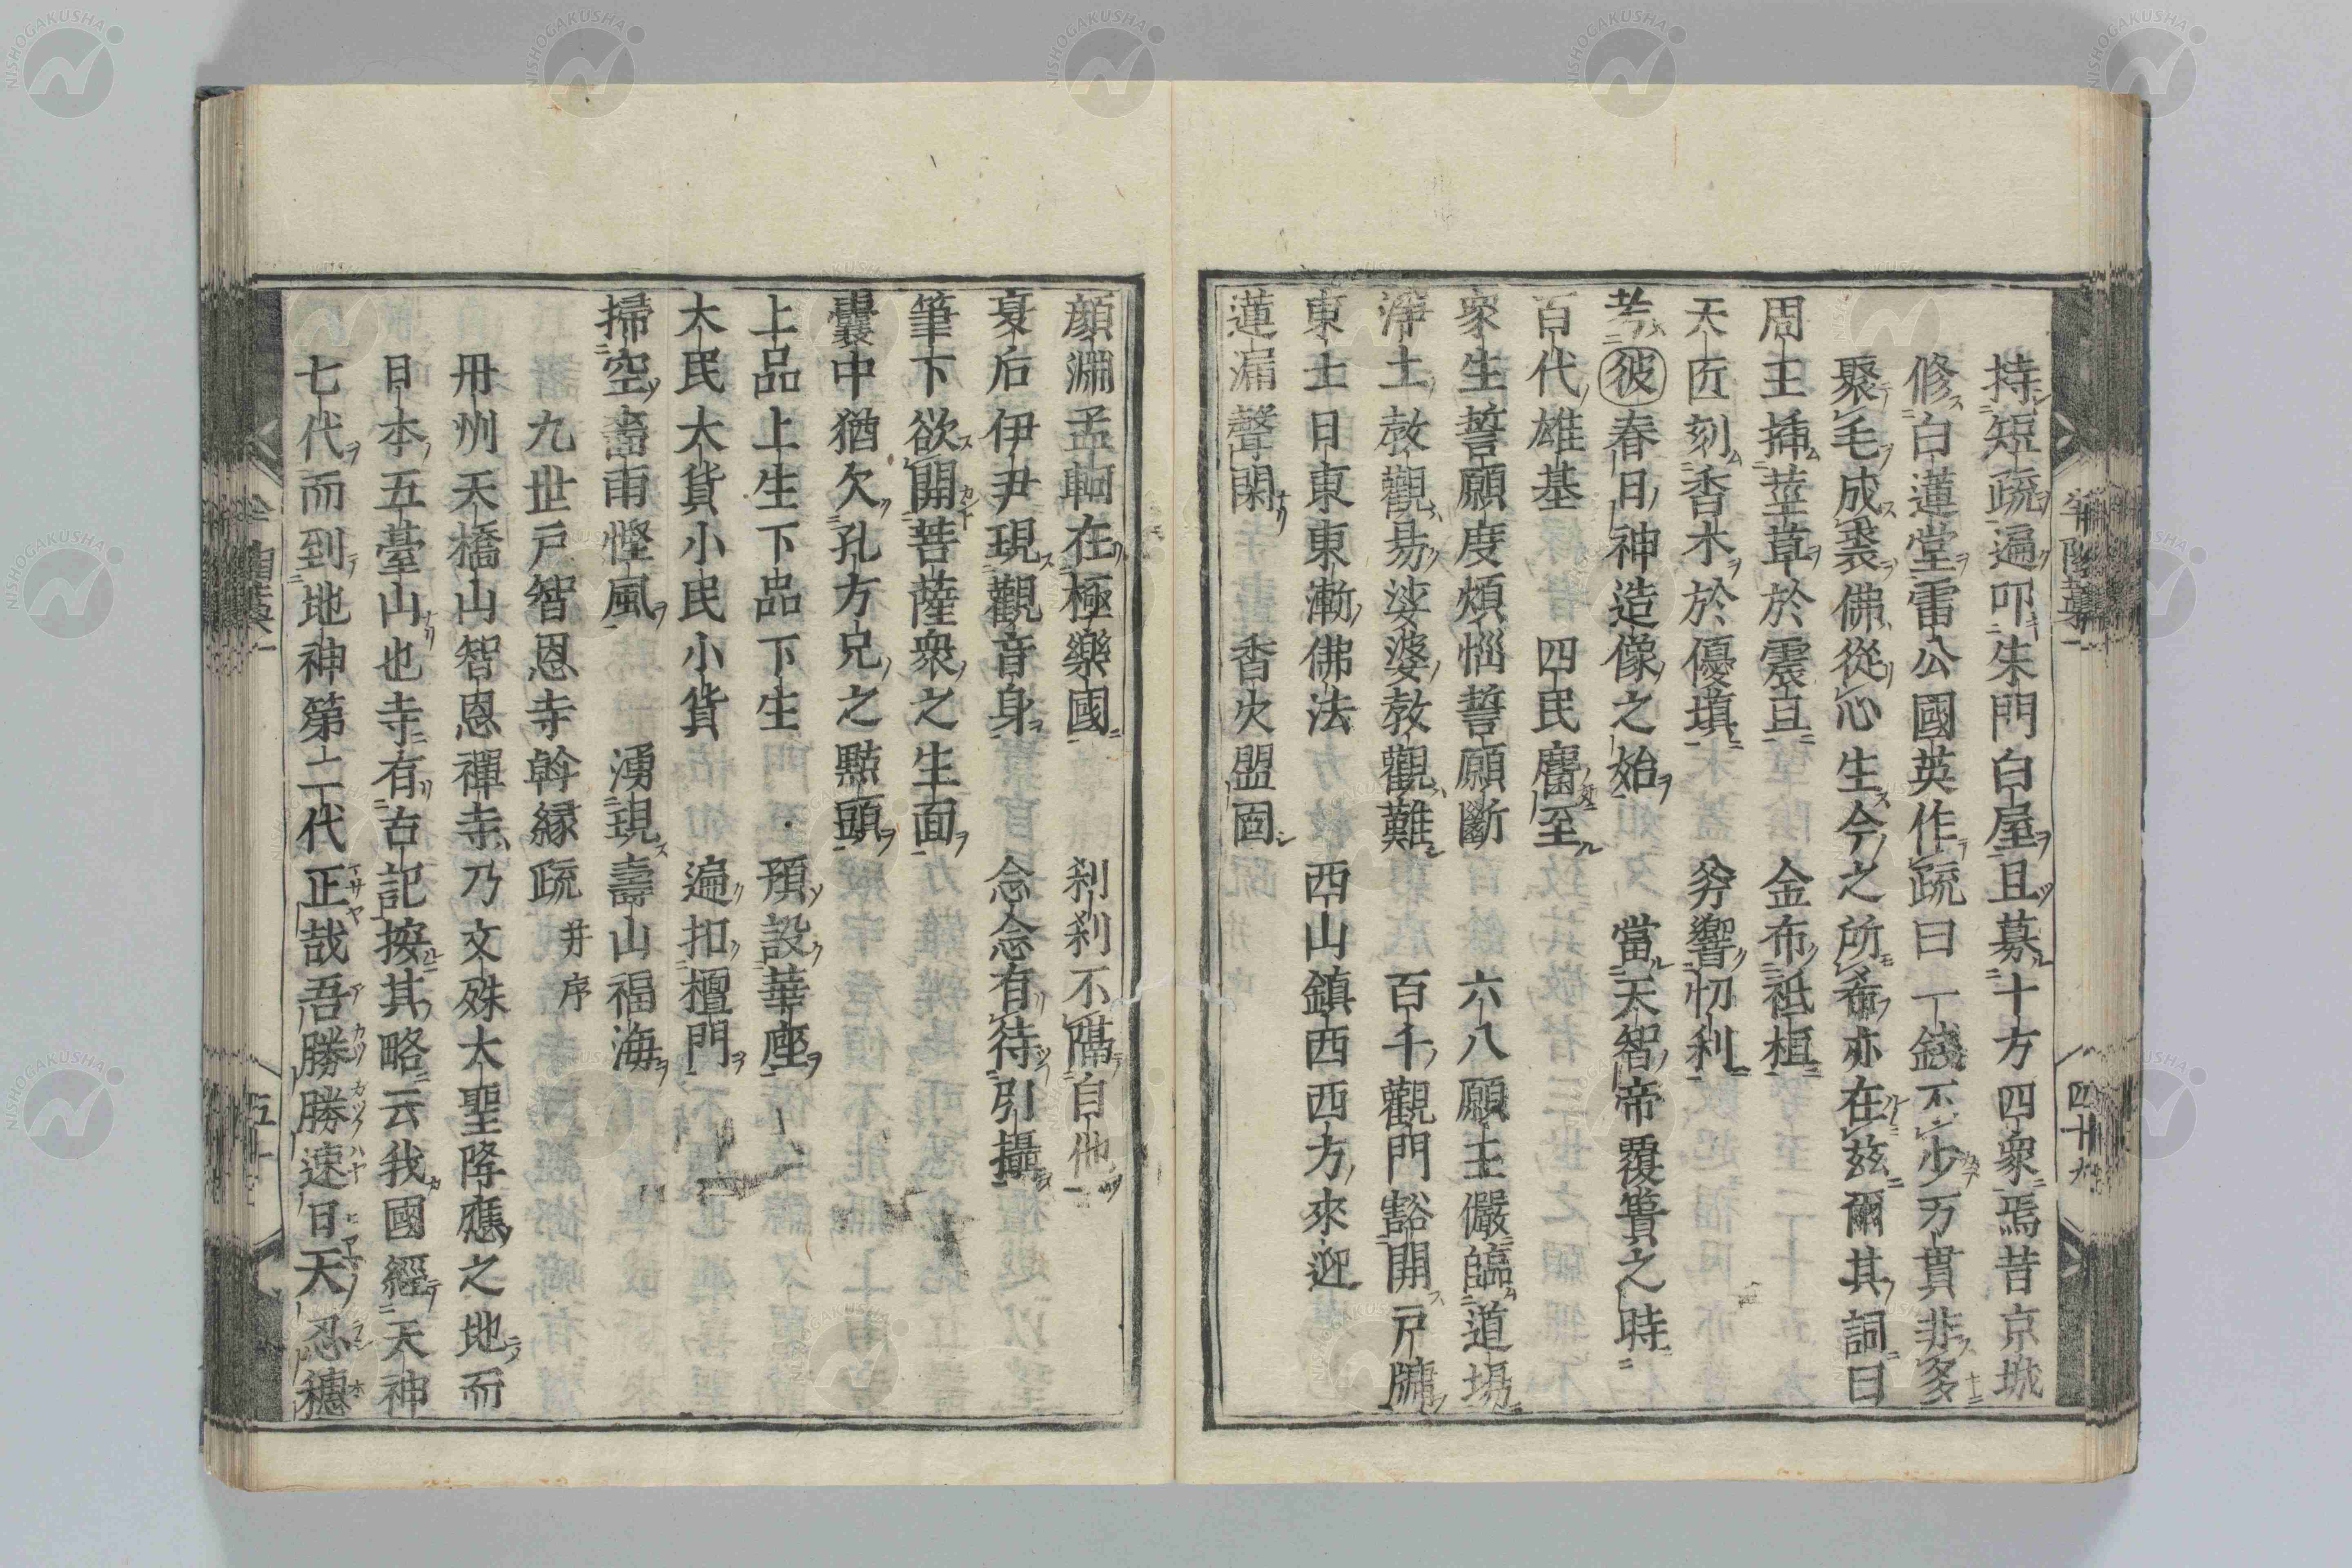 持短疏遍叩朱門白屋且募十方四衆焉昔京城
修白蓮堂雷公國英作疏曰一錢不少万貫非多
聚毛成裘佛從心生今之所希亦在玆爾其詞曰
周王挿莖草於震旦　金布祇桓
天匠刻香木於優塡　穷響忉利
考彼春日神造像之始　當天智帝覆簣之時
百代雄基　四民麕至
衆生誓願度煩惱誓願斷　六八願王儼臨道場
淨土教觀易娑婆教觀難　百千觀門豁開戸牖
東土日東東漸佛法　西山鎮西西方來迎
蓮漏聲閑　香火盟固
顔淵孟軻在極樂國　刹刹不隔自他
夏后伊尹現觀音身　念念有待引攝
筆下欲開菩薩衆之生面
囊中猶欠孔方兄之點頭
上品上生下品下生　預設華座
大民大貨小民小貨　遍扣檀門
掃空嗇雨慳風　湧現壽山福海
九世戸智恩寺幹縁疏 并序
丹州天橋山智恩禪寺乃文殊大聖降應之地而
日本五臺山也寺有古記按其略云我國經天神
七代而到地神第二代正哉吾勝勝速日天忍穗
四十九
五十
NISHOGAKUSHA